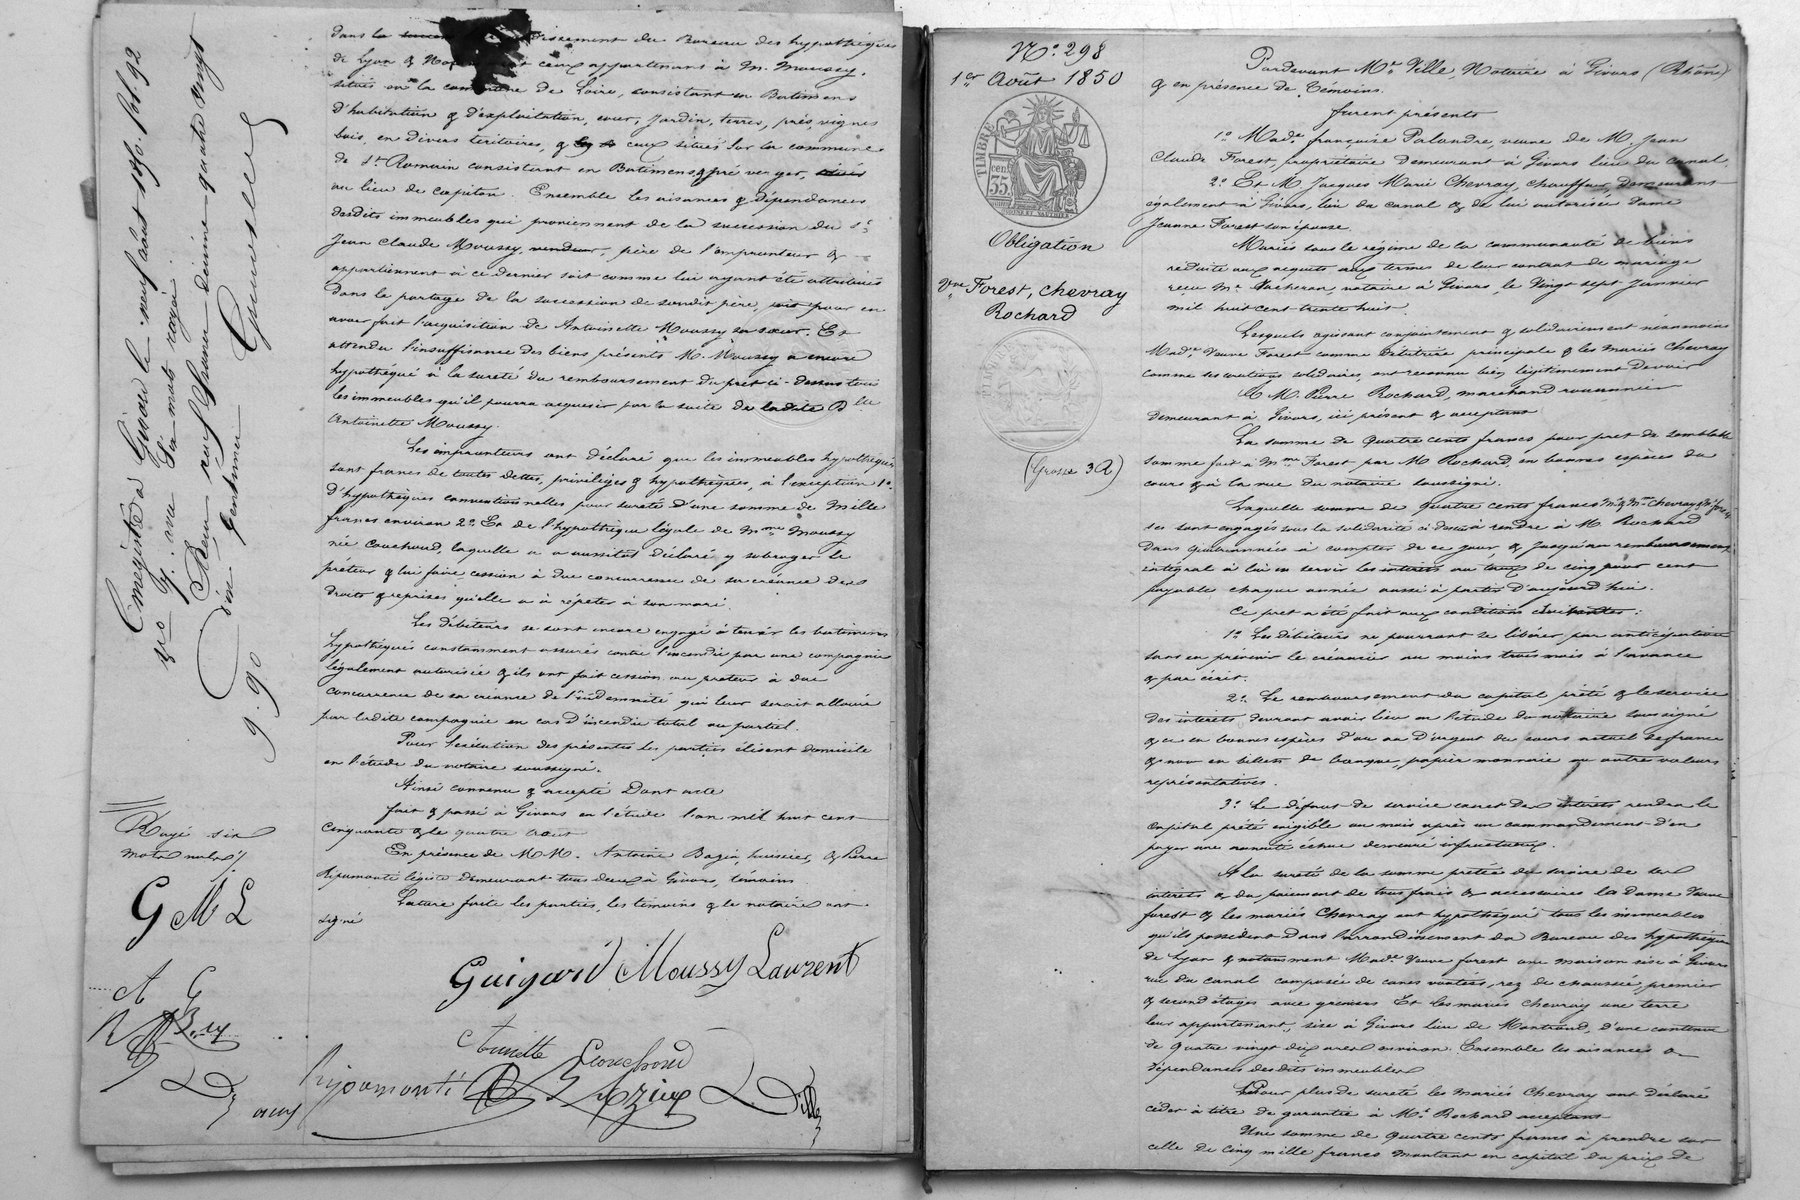 dans la dissement du Bureau des hypothèques
de Lyon & ceux appartenant à M. Moussy,
situés en la commune de Loire, consistant en Batimens
d'habitation & d'exploitation, cour, jardin, terres, prés, vignes
bois, en divers teritoires, & ceux situés sur la commune
de St. Romain consistant en Batimens & pré verger,
au lieu de capiton. Ensemble les aisances & dépendances
desdits immeubles qui proviennent de la succession du Sr.
Jean Claude Moussy, vendeur, père de l'emprunteur &
appartiennent à ce dernier soit comme lui ayant été attribués
dans le partage de la succession de soudit père, soit pour en
avoir fait l'acquisition de Antoinette Moussy sa sœur. Et
attendu l'insuffisance des biens présents M. Moussy a encore
hypothéqué à la sureté du remboursement du pret ci-dessus tous
les immeubles qu'il pourra acquérir par la suite de ladite Dlle
Antoinette Moussy.
Les emprunteurs ont déclaré que les immeubles hypothéqués
sont francs de toutes dettes, priviléges & hypothèques, à l'exception 1o.
d'hypothèques conventionnelles pour sureté d'une somme de mille
francs environ 2o. Et de l'hypothèque légale de Mme Moussy
née Couchoud, laquelle a aussitot déclaré y subroger le
preteur & lui faire cession à due concurrence de sa créance des
droits & reprises qu'elle a à répéter à son mari.
Les débiteurs se sont encore engagé à tenir les batimens
hypothéqués constamment assurés contre l'incendie par une compagnie
légalement autorisée & ils ont fait cession au preteur à due
concurrence de sa créance de l'indemnité qui leur serait allouée
par ladite compagnie en cas d'incendie total ou partiel.
Pour l'exécution des présentes les parties élisent domicile
en l'étude du notaire soussigné.
Ainsi convenu & accepté Dont acte
fait & passé à Givors en l'étude l'an mil huit cent
cinquante & le quatre août
En présence de MM. Antoine Bazin, huissier, & Pierre
Ripamonti légiste demeurant tous deux à Givors, témoins
Lecture faite les parties, les témoins & le notaire ont
signé
Guigard Moussy Laurent
Couchoud
Ripamonti
Enregistré à Givors le neuf août 1850. fol. 92
Six mots rayés
Reçu neuf francs décime quatre vingt
dix centimes
9.90
Rayé six
mots nuls
G M L
A C
No. 298
1er Août 1850
TIMBRE
35 cent.
Obligation
Vve Forest, Chevray
Rochard
(Grosse 3 R)
Pardevant Me. Ville, Notaire à Givors (Rhône)
& en présence de Temoins.
furent présents
1o. Made. françoise Palandre, veuve de M. Jean
Claude Forest, propriétaire demeurant à Givors lieu du canal,
2o. Et M. Jacques Marie Chevray, chauffeur, demeurant
également à Givors, lieu du canal & de lui autorisée dame
Jeanne Forest son épouse.
Mariés sous le régime de la communauté de biens
réduite aux acquets aux termes de leur contrat de mariage
reçu Me. Vacheron, notaire à Givors, le vingt sept Janvier
mil huit cent trente huit.
Lesquels agissant conjointement & solidairement néanmoins
Made. Veuve Forest comme débitrice principale & les mariés Chevray
comme ses cautions solidaires, ont reconnu bien légitimement devoir
à M. Pierre Rochard, marchand rouennier
demeurant à Givors, ici présent & acceptant
La somme de Quatre cents francs pour pret de semblable
somme fait à Mme Forest par M. Rochard, en bonnes espèces du
cours & à la vue du notaire soussigné.
Laquelle somme de quatre cents francs M. & Mme Chevray & Me. forest
se sont engagés sous la solidarité ci dessus à rendre à M. Rochard
dans quatre années à compter de ce jour, & jusqu'au remboursement
intégral à lui en servir les interets au taux de cinq pour cent
payable chaque année aussi à partir d'aujourd'hui.
Ce pret a été fait aux conditions suivantes:
1o. Les débiteurs ne pourront se libérer par anticipation
sans en prévenir le créancier au moins trois mois à l'avance
& par écrit.
2o. Le remboursement du capital prêté & le service
des interets devront avoir lieu en l'étude du notaire soussigné
& ce en bonnes espèces d'or ou d'argent du cours actuel de france
& non en billets de banque, papier monnaie ou autres valeurs
représentatives.
3o. Le défaut de service exact des interets rendra le
capital prêté exigible un mois après un commandement d'en
payer une annuité échue demeuré infructueux.
A la sureté de la somme prêtée du service de ses
interets & du paiement de tous frais & accessoires la Dame Veuve
forest & les mariés Chevray ont hypothéqué tous les immeubles
qu'ils possedent dans l'arrondissement du Bureau des hypothèques
de Lyon & notamment Made. Veuve forest une maison sise à Givors
rue du canal composée de caves voutées, rez de chaussée, premier
& second étages avec greniers Et les mariés Chevray une terre
leur appartenant, sise à Givors lieu de Montrond, d'une contenue
de quatre vingt dix ares environ. Ensemble les aisances &
dépendances desdits immeubles
Pour plus de sureté les mariés Chevray ont déclaré
céder à titre de garantie à Mr. Rochard acceptant
Une somme de quatre cents francs à prendre sur
celle de cinq mille francs montant en capital du prix de